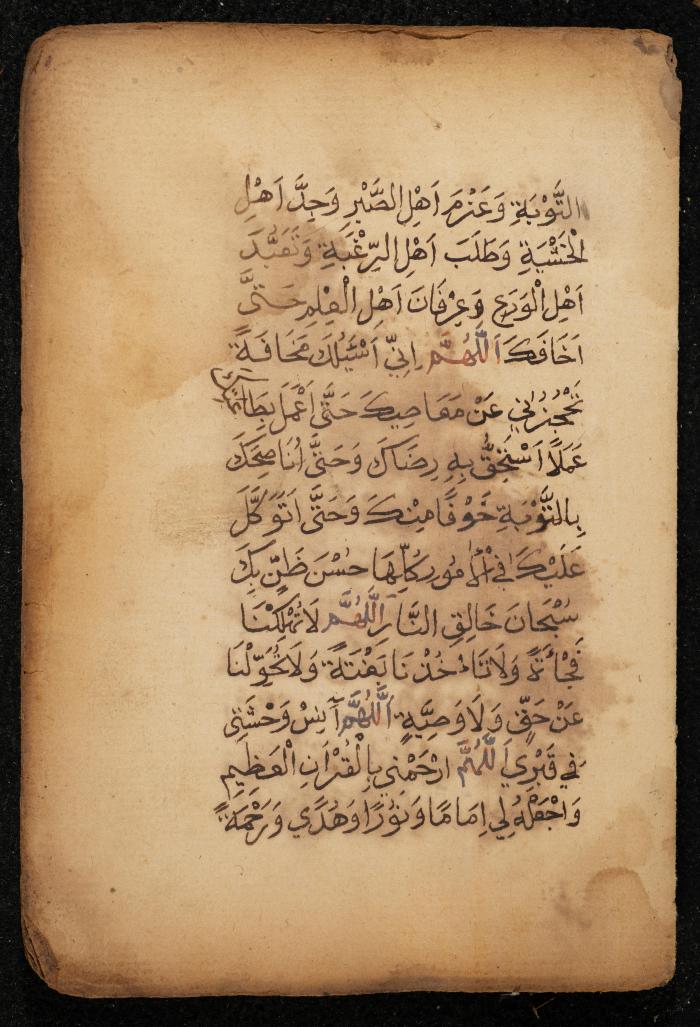 التَّوْبَةِ وَعَزْمَ اَهْلِ الصَّبْرِ وَجِدَّ اَهْلِ
الْخَشْيَةِ وَطَلَبَ اَهْلِ الرِّغْبَةِ وَتَعَبُّدَ
اَهْلِ الْوَرَعِ وَعِرْفَانَ اَهْلِ الْعِلْمِ حَتَّىٰ
اَخَافَكَ اَللّٰهُمَّ اِنِّي اَسْئَلُكَ مَخَافَةً
تَحْجُزُنِي عَنْ مَعَاصِيكَ حَتَّىٰ اَعْمَلَ بِطَاعَتِكَ
عَمَلًا اَسْتَحِقُّ بِهِ رِضَاكَ وَحَتَّىٰ اُنَاصِحَكَ
بِالتَّوْبَةِ خَوْفًا مِنْكَ وَحَتَّىٰ اَتَوَكَّلَ
عَلَيْكَ فِي الْاُمُورِ كُلِّهَا حُسْنَ ظَنٍّ بِكَ
سُبْحَانَ خَالِقِ النَّارِ اَللّٰهُمَّ لَا تُهْلِكْنَا
فَجْاَةً وَلَا تَاْخُذْنَا بَغْتَةً وَلَا تُحَوِّلْنَا
عَنْ حَقٍّ وَلَا وَصِيَّةٍ اَللّٰهُمَّ آنِسْ وَحْشَتِي
فِي قَبْرِي اَللّٰهُمَّ ارْحَمْنِي بِالْقُرْاٰنِ الْعَظِيمِ
وَاجْعَلْهُ لِي اِمَامًا وَنُورًا وَهُدًي وَرَحْمَةً